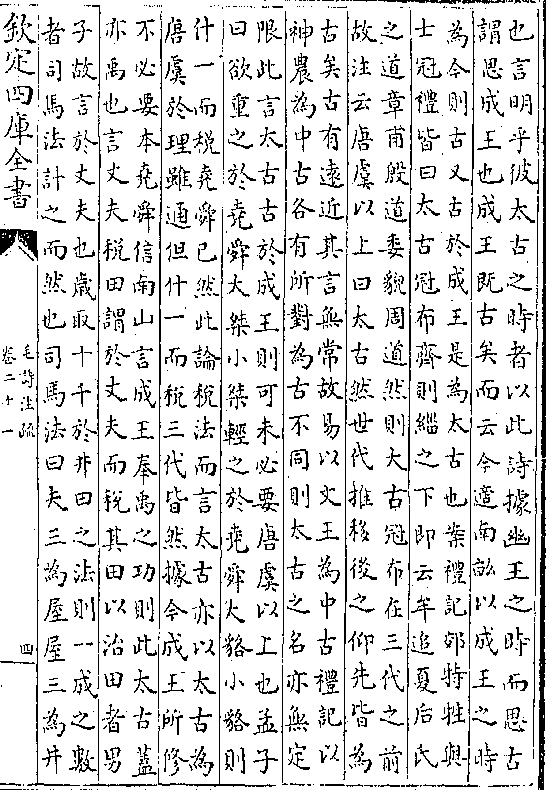 也言明乎彼太古之時者以此詩據幽王之時而思古
謂思成王也成王既古矣而云今適南畝以成王之時
為今則古又古於成王是為太古也案禮記郊特牲與
士冠禮皆曰太古冠布齊則緇之下即云牟追夏后氏
之道章甫殷道委貌周道然則大古冠布在三代之前
故注云唐虞以上曰太古然世代推移後之仰先皆為
古矣古有遠近其言無常故易以文王為中古禮記以
神農為中古各有所對為古不同則太古之名亦無定
限此言太古古於成王則可未必要唐虞以上也孟子
曰欲重之於堯舜大桀小桀輕之於堯舜大貉小貉則
什一而税堯舜已然此論税法而言太古亦以太古為
唐虞於理雖通但什一而税三代皆然據今成王所修
不必要本堯舜信南山言成王奉禹之功則此太古蓋
亦禹也言丈夫税田謂於丈夫而税其田以治田者男
子故言於丈夫也歲取十千於井田之法則一成之數
者司馬法計之而然也司馬法曰夫三為屋屋三為井
欽定四庫全書
毛詩注疏
卷二十一
四